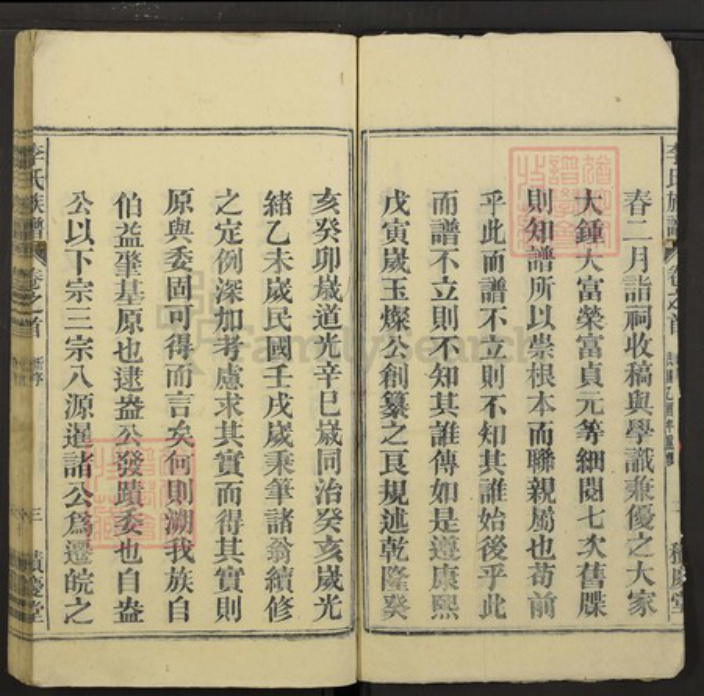 李氏族譜
卷之首
積慶堂
春二月詣祠收稿與學識兼優之大家
大鍾大富榮富貞元等細閱七次舊牒
則知譜所以崇根本而聯親屬也苟前
乎此而譜不立則不知其誰始後乎此
而譜不立則不知其誰傳如是遵康熙
戊寅歲玉燦公創纂之良規述乾隆癸
亥癸卯歲道光辛巳歲同治癸亥歲光
緒乙未歲民國壬戌歲秉筆諸翁續修
之定例深加考慮求其實而得其實則
原與委固可得而言矣何則溯我族自
伯益肇基原也逮盎公發蹟委也自盎
公以下宗三宗八源暹諸公爲遷皖之
李氏族譜
卷之首
新序
三
積慶堂
FamilySearch